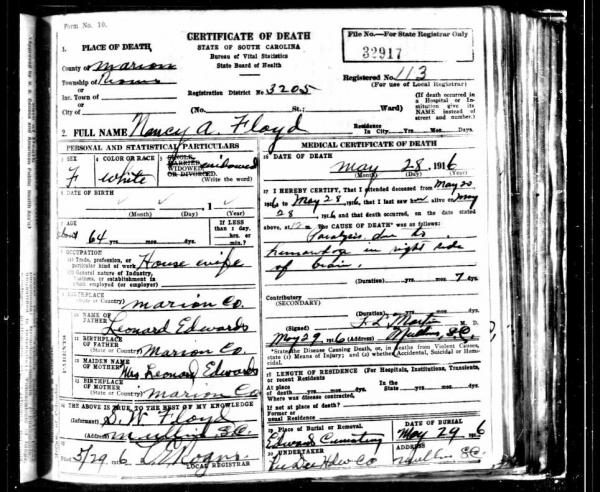 Form No. 10.
CERTIFICATE OF DEATH
STATE OF SOUTH CAROLINA
Bureau of Vital Statistics
State Board of Health
File No.—For State Registrar Only
32917
1. PLACE OF DEATH
County of Marion
Township of
or
Inc. Town of
or
City of
Registration District No 3205
Registered No. 113
(For use of Local Registrar)
(No. St.; Ward)
(If death occurred in a Hospital or Institution give its NAME instead of street and number.)
2. FULL NAME Nancy A. Floyd
Residence In City Yrs. Mos. Days
PERSONAL AND STATISTICAL PARTICULARS
3 SEX
F
4 COLOR OR RACE
White
5 SINGLE, MARRIED, WIDOWED OR DIVORCED. widowed
(Write the word)
6 DATE OF BIRTH
(Month) (Day) (Year)
7 AGE
about 64 yrs. mos. ds.
If LESS than 1 day, hrs. or min.?
8 OCCUPATION
(a) Trade, profession, or particular kind of work House wife
(b) General nature of Industry, business, or establishment in which employed (or employer)
9 BIRTHPLACE
(State or Country) Marion Co.
10 NAME OF FATHER
Leonard Edwards
11 BIRTHPLACE OF FATHER
(State or Country) Marion Co.
12 MAIDEN NAME OF MOTHER
Mrs Leonard Edwards
13 BIRTHPLACE OF MOTHER
(State or Country) Marion Co
14 THE ABOVE IS TRUE TO THE BEST OF MY KNOWLEDGE
(Informant) S. W. Floyd
(Address) S.C.
15 Filed 5/29 1916
LOCAL REGISTRAR
MEDICAL CERTIFICATE OF DEATH
16 DATE OF DEATH
May 28, 1916
(Month) (Day) (Year)
17 I HEREBY CERTIFY, That I attended deceased from May 20
1916 to May 28, 1916, that I last saw alive on May
28, 1916, and that death occurred, on the date
above, at m. The CAUSE OF DEATH* was as follows:
Paralysis due to
in right side
of brain.
(Duration) yrs. mos. 7 ds.
Contributory
(SECONDARY)
(Duration) yrs. mos. ds.
(Signed) Martin M. D.
May 29, 1916 (Address) Mullins SC
*State the Disease Causing Death, or, in deaths from Violent Causes, state (1) Means of Injury; and (2) whether Accidental, Suicidal or Homicidal.
18 LENGTH OF RESIDENCE (For Hospitals, Institutions, Transients, or recent Residents)
At place of death yrs. mos. ds. In the State yrs. mos. ds.
Where was disease contracted,
If not at place of death?
Former or usual Residence
19 Place of Burial or Removal.
Edwards Cemetery
DATE OF BURIAL
May 29, 1916
20 UNDERTAKER
Pee Dee Hdw Co
Mullins SC.